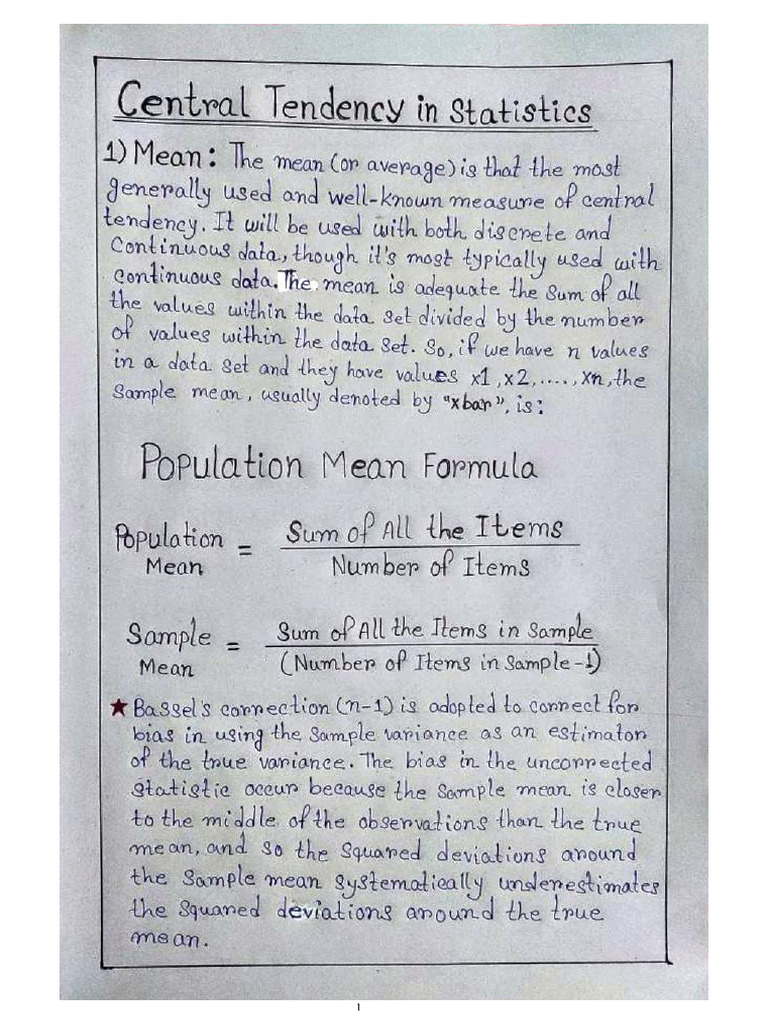 Central Tendency in Statistics
1) Mean: The mean (or average) is that the most
generally used and well-known measure of central
tendency. It will be used with both discrete and
Continuous data, though it's most typically used with
continuous data. The mean is adequate the sum of all
the values within the data set divided by the number
of values within the data set. So, if we have n values
in a data set and they have values x1, x2, ...., xn, the
Sample mean, usually denoted by "xbar", is:
Population Mean Formula
Population Mean = Sum of All the Items / Number of Items
Sample Mean = Sum of All the Items in Sample / (Number of Items in Sample-1)
★ Bassel's correction (n-1) is adopted to correct for
bias in using the sample variance as an estimator
of the true variance. The bias in the uncorrected
statistic occur because the sample mean is closer
to the middle of the observations than the true
mean, and so the squared deviations around
the sample mean systematically underestimates
the squared deviations around the true
mean.
1